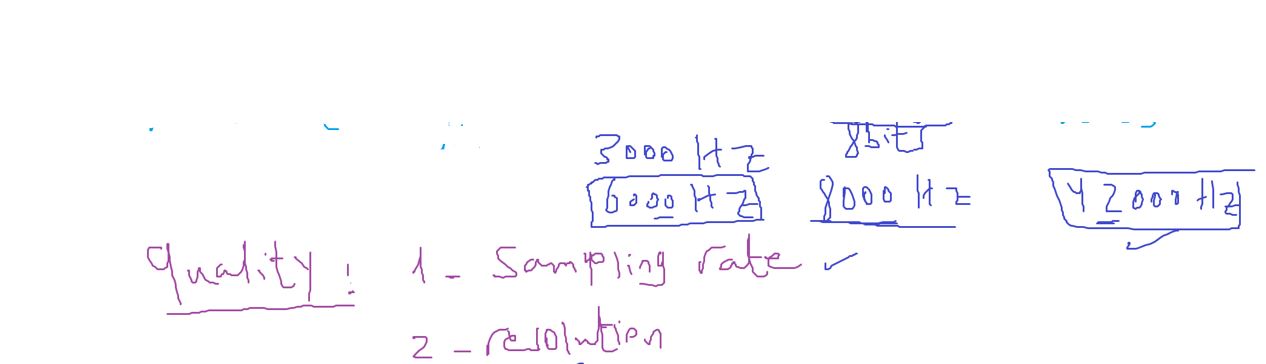 8bits
3000 Hz
6000 Hz 8000 Hz 42000 Hz
Quality: 1- Sampling rate ✓
2- resolution